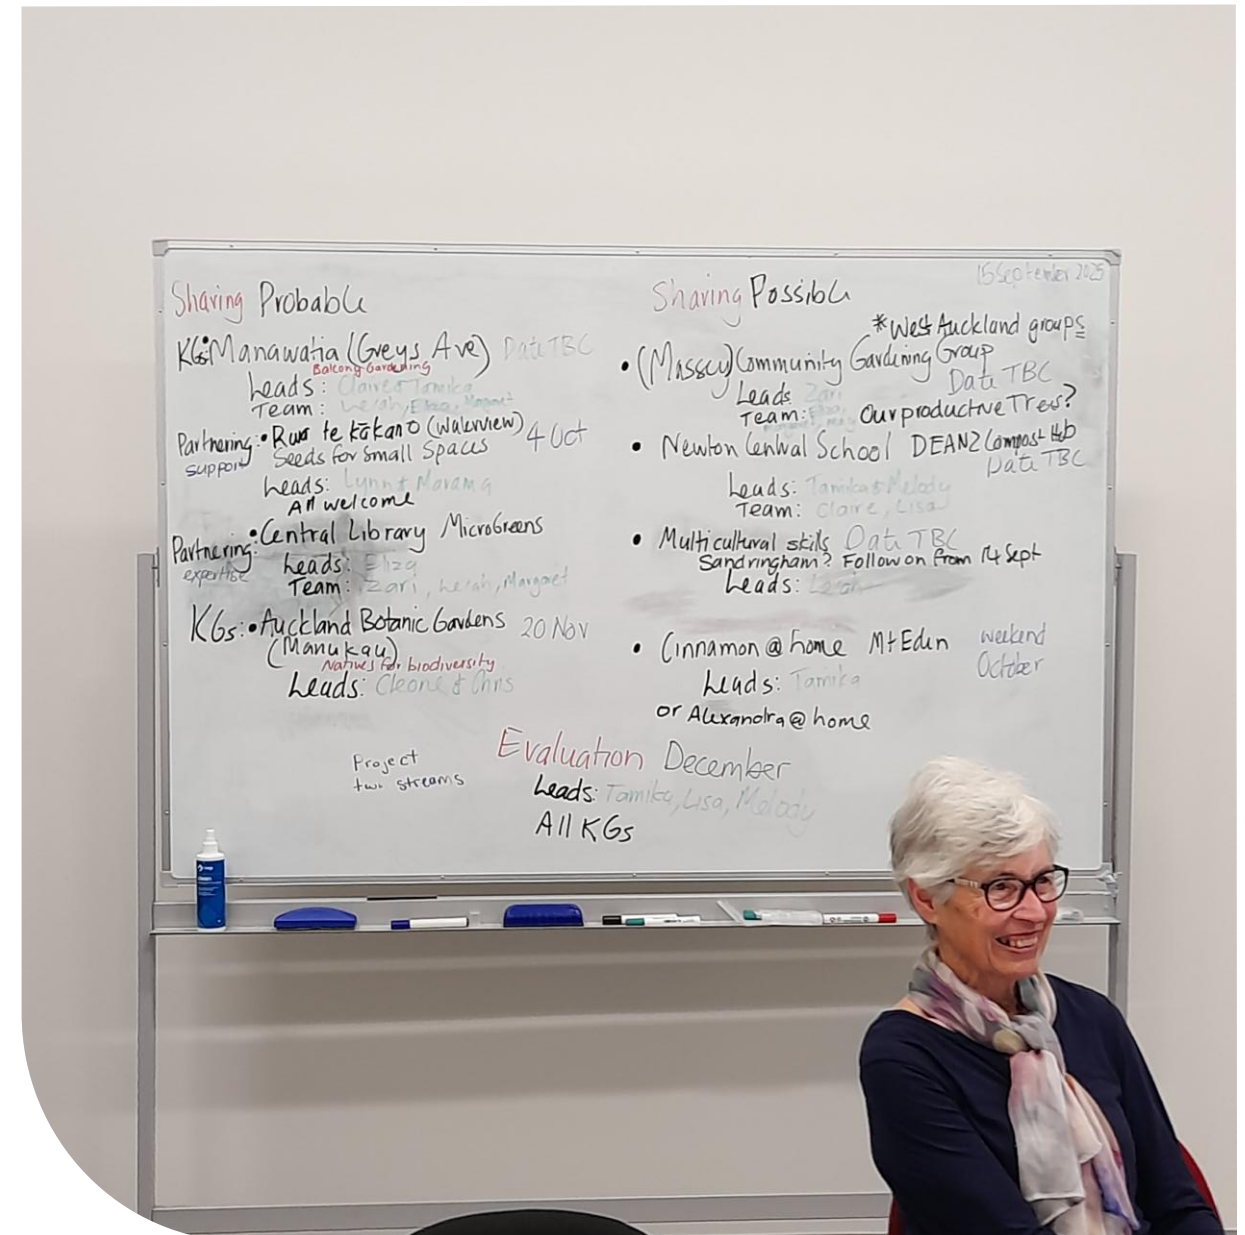 15 September 2025
Sharing Probable
KGs: Manawatia (Greys Ave) Date TBC
Balcony Gardening
Leads: Claire & Tamika
Team: Leiah, Eliza, Margaret
Partnering: • te kākano (Waterview) 4 Oct
support Seeds for Small Spaces
Leads: Lynn & Marama
All welcome
• Central Library MicroGreens
Partnering:
expertise Leads: Eliza
Team: Zari, Leiah, Margaret
KGs: • Auckland Botanic Gardens 20 Nov
(Manukau)
Natives for biodiversity
Leads: Cleone & Chris
Sharing Possible
*West Auckland groups
• (Massey) Community Gardening Group
Date TBC
Leads Zari
Team: Eliza, Our productive Trees?
• Newton Central School DEANZ Compost Hub
Date TBC
Leads: Tamika & Melody
Team: Claire, Lisa
• Multicultural skills Date TBC
Sandringham? Follow on from 14 Sept
Leads: Leiah
• Cinnamon @ home Mt Eden weekend
October
Leads: Tamika
or Alexandra @ home
Project
two streams
Evaluation December
Leads: Tamika, Lisa, Melody
All KGs